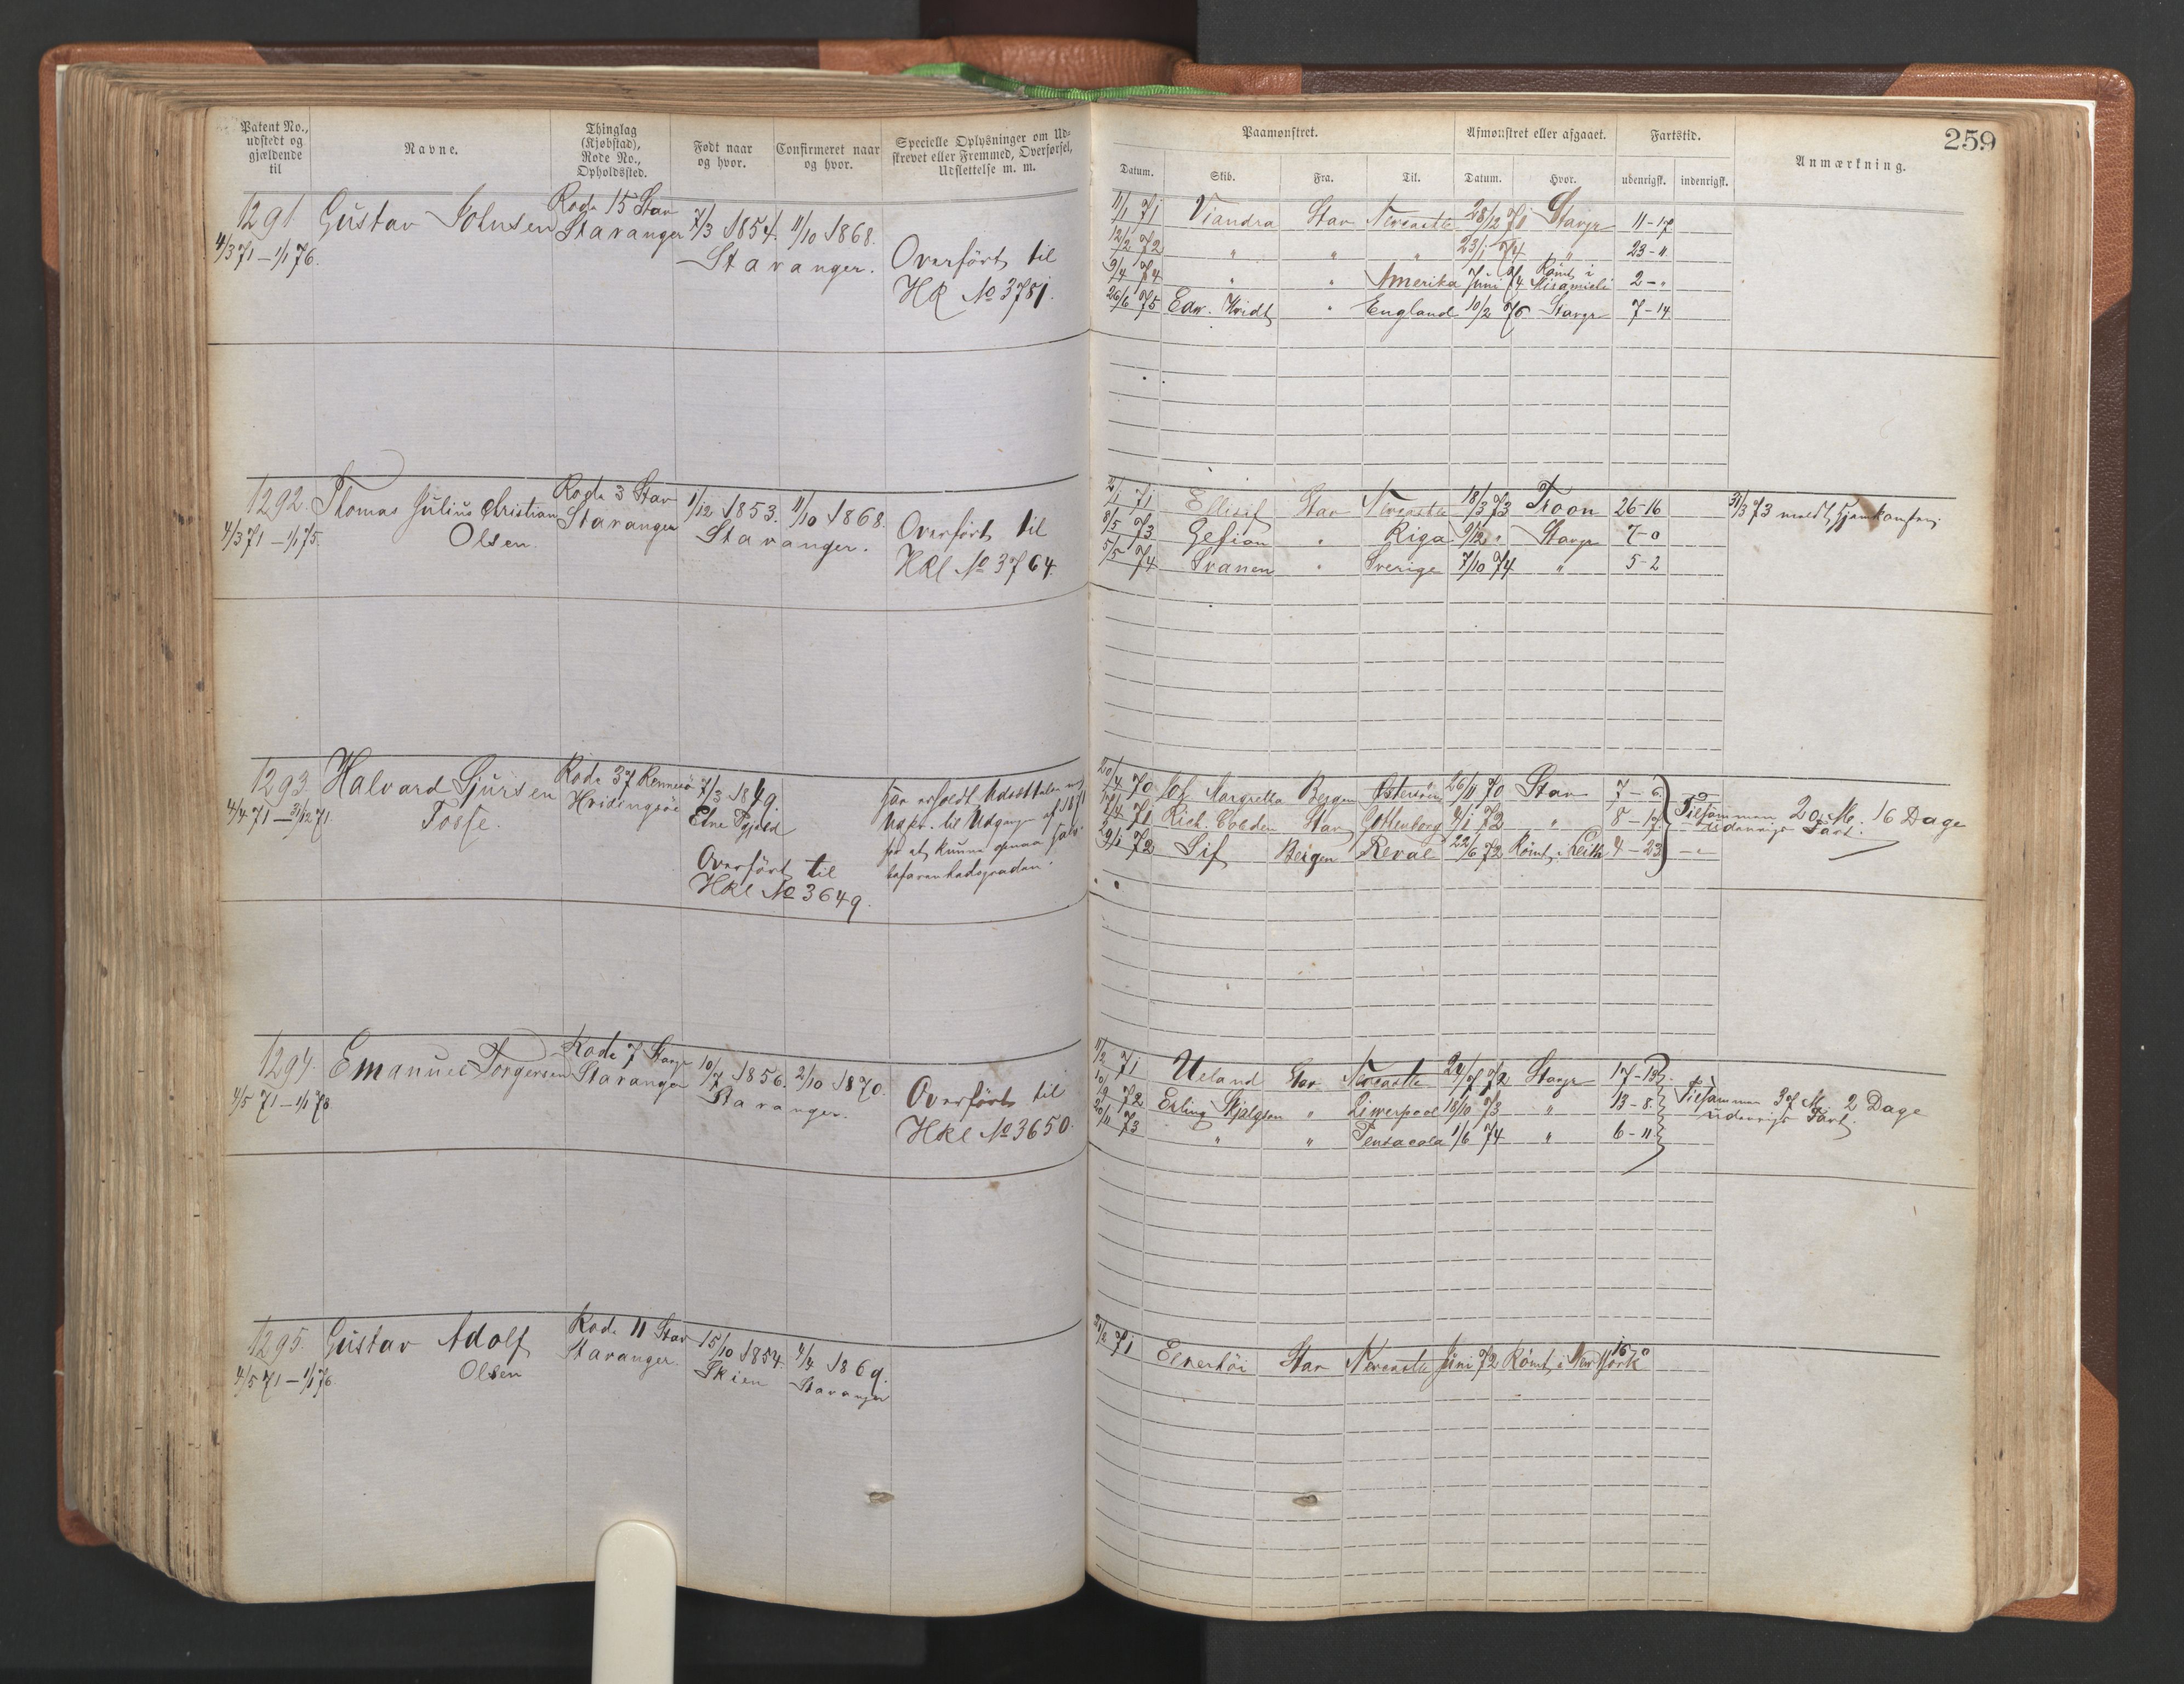 Patent No., udstedt og gjældende til
Navne.
Thinglag (Kjøbstad), Rode No., Opholdssted.
Født naar og hvor.
Confirmeret naar og hvor.
Specielle Oplysninger om Udskrevet eller Fremmed, Overførsel, Udslettelse m. m.
Paamønstret.
Afmønstret eller afgaaet.
Fartstid.
Anmærkning.
259
Datum. Skib. Fra. Til. Datum. Hvor. udenrigsk. indenrigsk.
1291 Gustav Johnsen Rode 15 Stav 7/3 1854. 11/10 1868.
4/3 71 – 1/1 76. Stavanger Stavanger.
Overført til
HR No 3781.
11/1 71 Viandra Stav Newcastle 28/12 71 Stavgr 11-17
12/2 72 " " " 23/1 74 " 23-11
9/4 74 " " Amerika Juni 74 Rømt i 2 - "
26/6 75 Edv. Hvidt " England 10/2 76 Stavgr 7-14
1292. Thomas Julius Christian Rode 3 Stav 1/12 1853. 11/10 1868.
4/3 71 – 1/1 75. Olsen. Stavanger Stavanger.
Overført til
HKl No 3764.
2/1 71 Ellisif Stav Newcastle 18/3 73 Troon 26-16 31/3 73 meldt hjemkommen.
8/5 73 Gefion " Riga 9/12 " Stavgr 7-0
5/5 74 Svanen " Sverige 7/10 74 " 5-2
1293. Halvard Sjursen Rode 37 Rennesø 7/3 1849.
4/4 71 – 31/12 71. Tosse. Hvidingsøe Etne
Overført til
HKl No 3649.
Har erholdt Udsættelse med
Udskr. til Udgangen af 1871
for at kunne opnaa
20/4 70 Margretha Bergen Østersøen 26/11 70 Stav 7-6
14/4 71 Rich. Cobden Stav Gottenborg 4/1 72 " 8-17
29/1 72 Sif Bergen Reval 22/6 72 Rømt i Leith 4-23
Tilsammen 20 M. 16 Dage
udenrigs Fart.
1294. Emanuel Torgersen Rode 7 Stavgr 10/7 1856. 2/10 1870.
4/5 71 – 1/1 78. Stavanger Stavanger.
Overført til
HKl No 3650.
11/2 71 Ueland Stav Newcastle 24/7 72 Stavgr 17-13
10/9 72 Erling Skjalgsen " Liwerpool 18/10 73 " 13-8
20/11 73 " " Pensacola 1/6 74 " 6-11
Tilsammen 37 M. 2 Dage
udenrigs Fart.
1295. Gustav Adolf Rode 11 Stav 15/10 1854. 4/4 1869.
4/5 71 – 1/1 76. Olsen Stavanger. Skien Stavanger
21/2 71 Einerhøi Stav Newcastle Juni 72 Rømt i New York 16-0